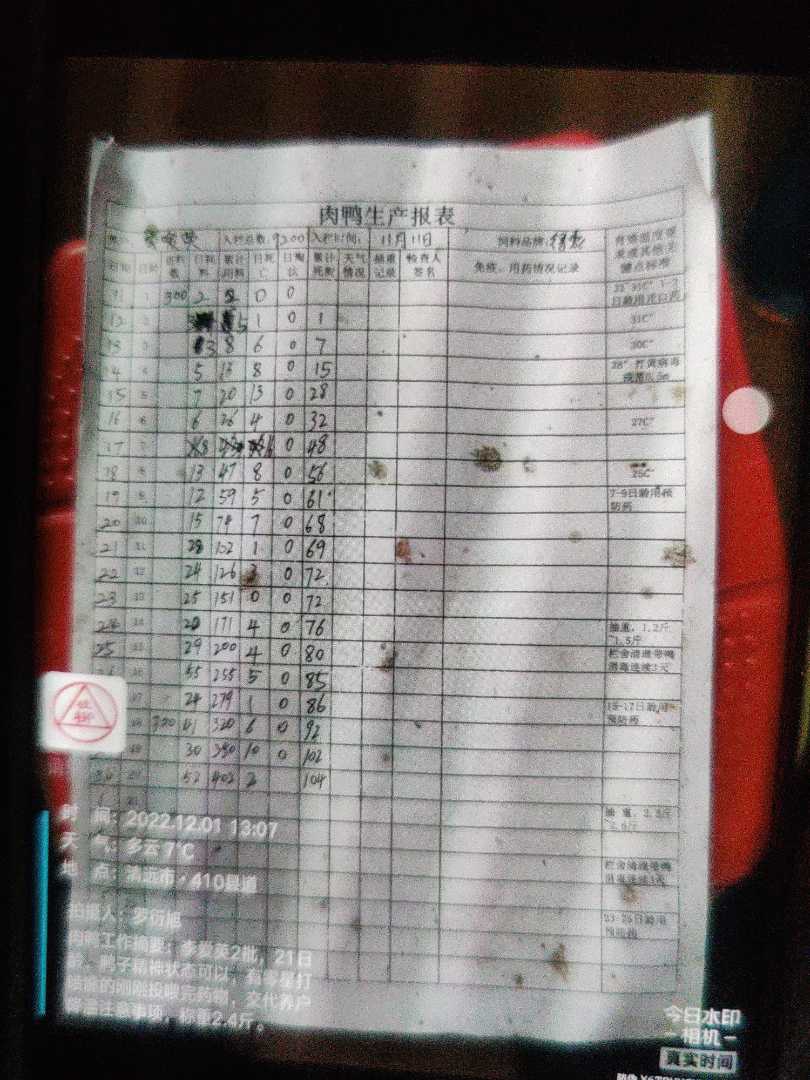 肉鸭生产报表
入栏总数:9200 入栏时间: 11月11日 饲料品牌:
日龄 日耗料 累计用料 日死亡 日淘汰 累计死淘 天气情况 抽重记录 检查人签名 免疫、用药情况记录
1 300 2 2 0 0
12 2 5 1 0 1 31C°
13 3 3 8 6 0 7 30C°
14 4 5 13 8 0 15
15 5 7 20 13 0 28
16 6 6 26 4 0 32 27C°
17 7 0 48
18 8 13 47 8 0 56 25C°
19 9 12 59 5 0 61 7-9日龄用预防药
20 10 15 74 7 0 68
21 11 28 102 1 0 69
22 12 24 126 3 0 72
23 13 25 151 0 0 72
24 14 20 171 4 0 76 抽重，1.2斤~1.5斤
25 15 29 200 4 0 80 栏舍清理带鸭消毒连续3天
16 55 255 5 0 85
17 24 279 1 0 86 15-17日龄用预防药
18 300 41 320 6 0 92
19 30 350 10 0 102
30 20 52 402 2 104
21 抽重，
栏舍清理带鸭消毒连续3天
23-25日龄用预防药
时 间：2022.12.01 13:07
天 气：多云 7℃
地 点：清远市·410县道
拍摄人：罗衍旭
肉鸭工作摘要：李爱英2批，21日
龄，鸭子精神状态可以，有零星打
喷嚏的刚刚投喂完药物，交代养户
降温注意事项，称重2.4斤。
今日水印
-相机-
真实时间